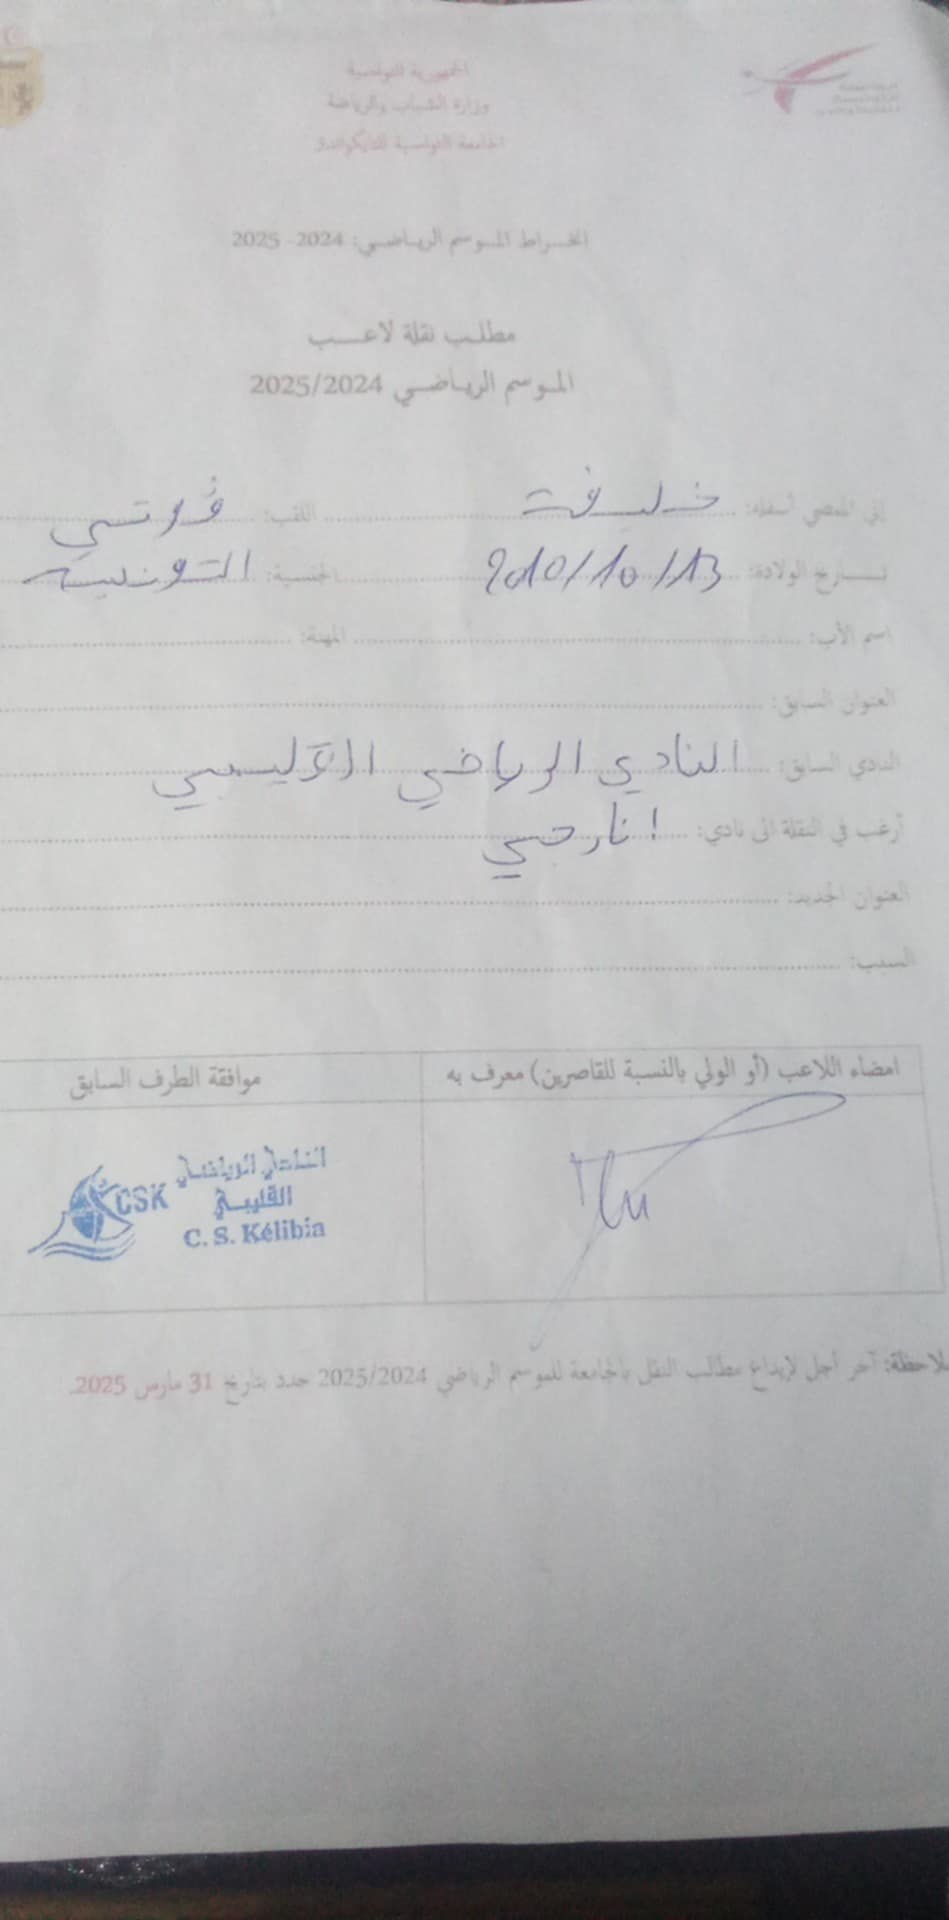 الجمهورية التونسية
وزارة الشباب والرياضة
الجامعة التونسية للتايكواندو
انخـــراط المـوسم الريـاضـــي: 2024- 2025
مطلـب نقلة لاعــــب
المـوسم الريـاضـــي 2025/2024
إني الممضي أسفله: خليفة اللقب:
تــــاريخ الولادة: 2010/10/13 الجنسية: التونسية
اسم الأب: المهنة:
العنوان السابق:
النادي السابق: النادي الرياضي القليبي
أرغب في النقلة الى نادي: انارجي
العنوان الجديد:
السبب:
امضاء اللاعب (أو الولي بالنسبة للقاصرين) معرف به موافقة الطرف السابق
النادي الرياضي
القليبي
CSK
C. S. Kélibia
ملاحظة: آخر أجل لإيداع مطالب النقل بالجامعة للموسم الرياضي 2025/2024 حدد بتاريخ 31 مارس 2025.